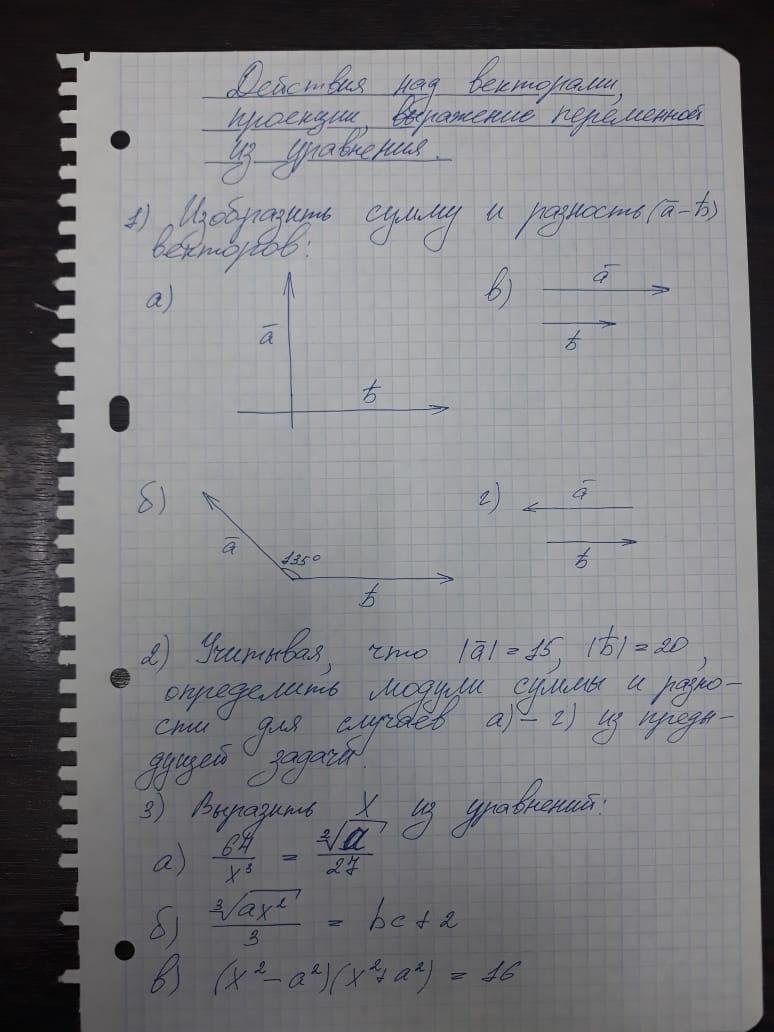 Действия над векторами,
проекции, выражение переменной
из уравнения.
1) Изобразить сумму и разность (a̅ - b̅)
векторов:
а)
a̅
b̅
в)
a̅
b̅
б)
a̅
135°
b̅
г)
a̅
b̅
2) Учитывая, что |a̅| = 15, |b̅| = 20,
определить модули суммы и разно-
сти для случаев а) - г) из преды-
дущей задачи.
3) Выразить X из уравнений:
а) 64/x³ = ∛a/27
б) ∛(ax²)/3 = bc + 2
в) (x² - a²)(x² + a²) = 16